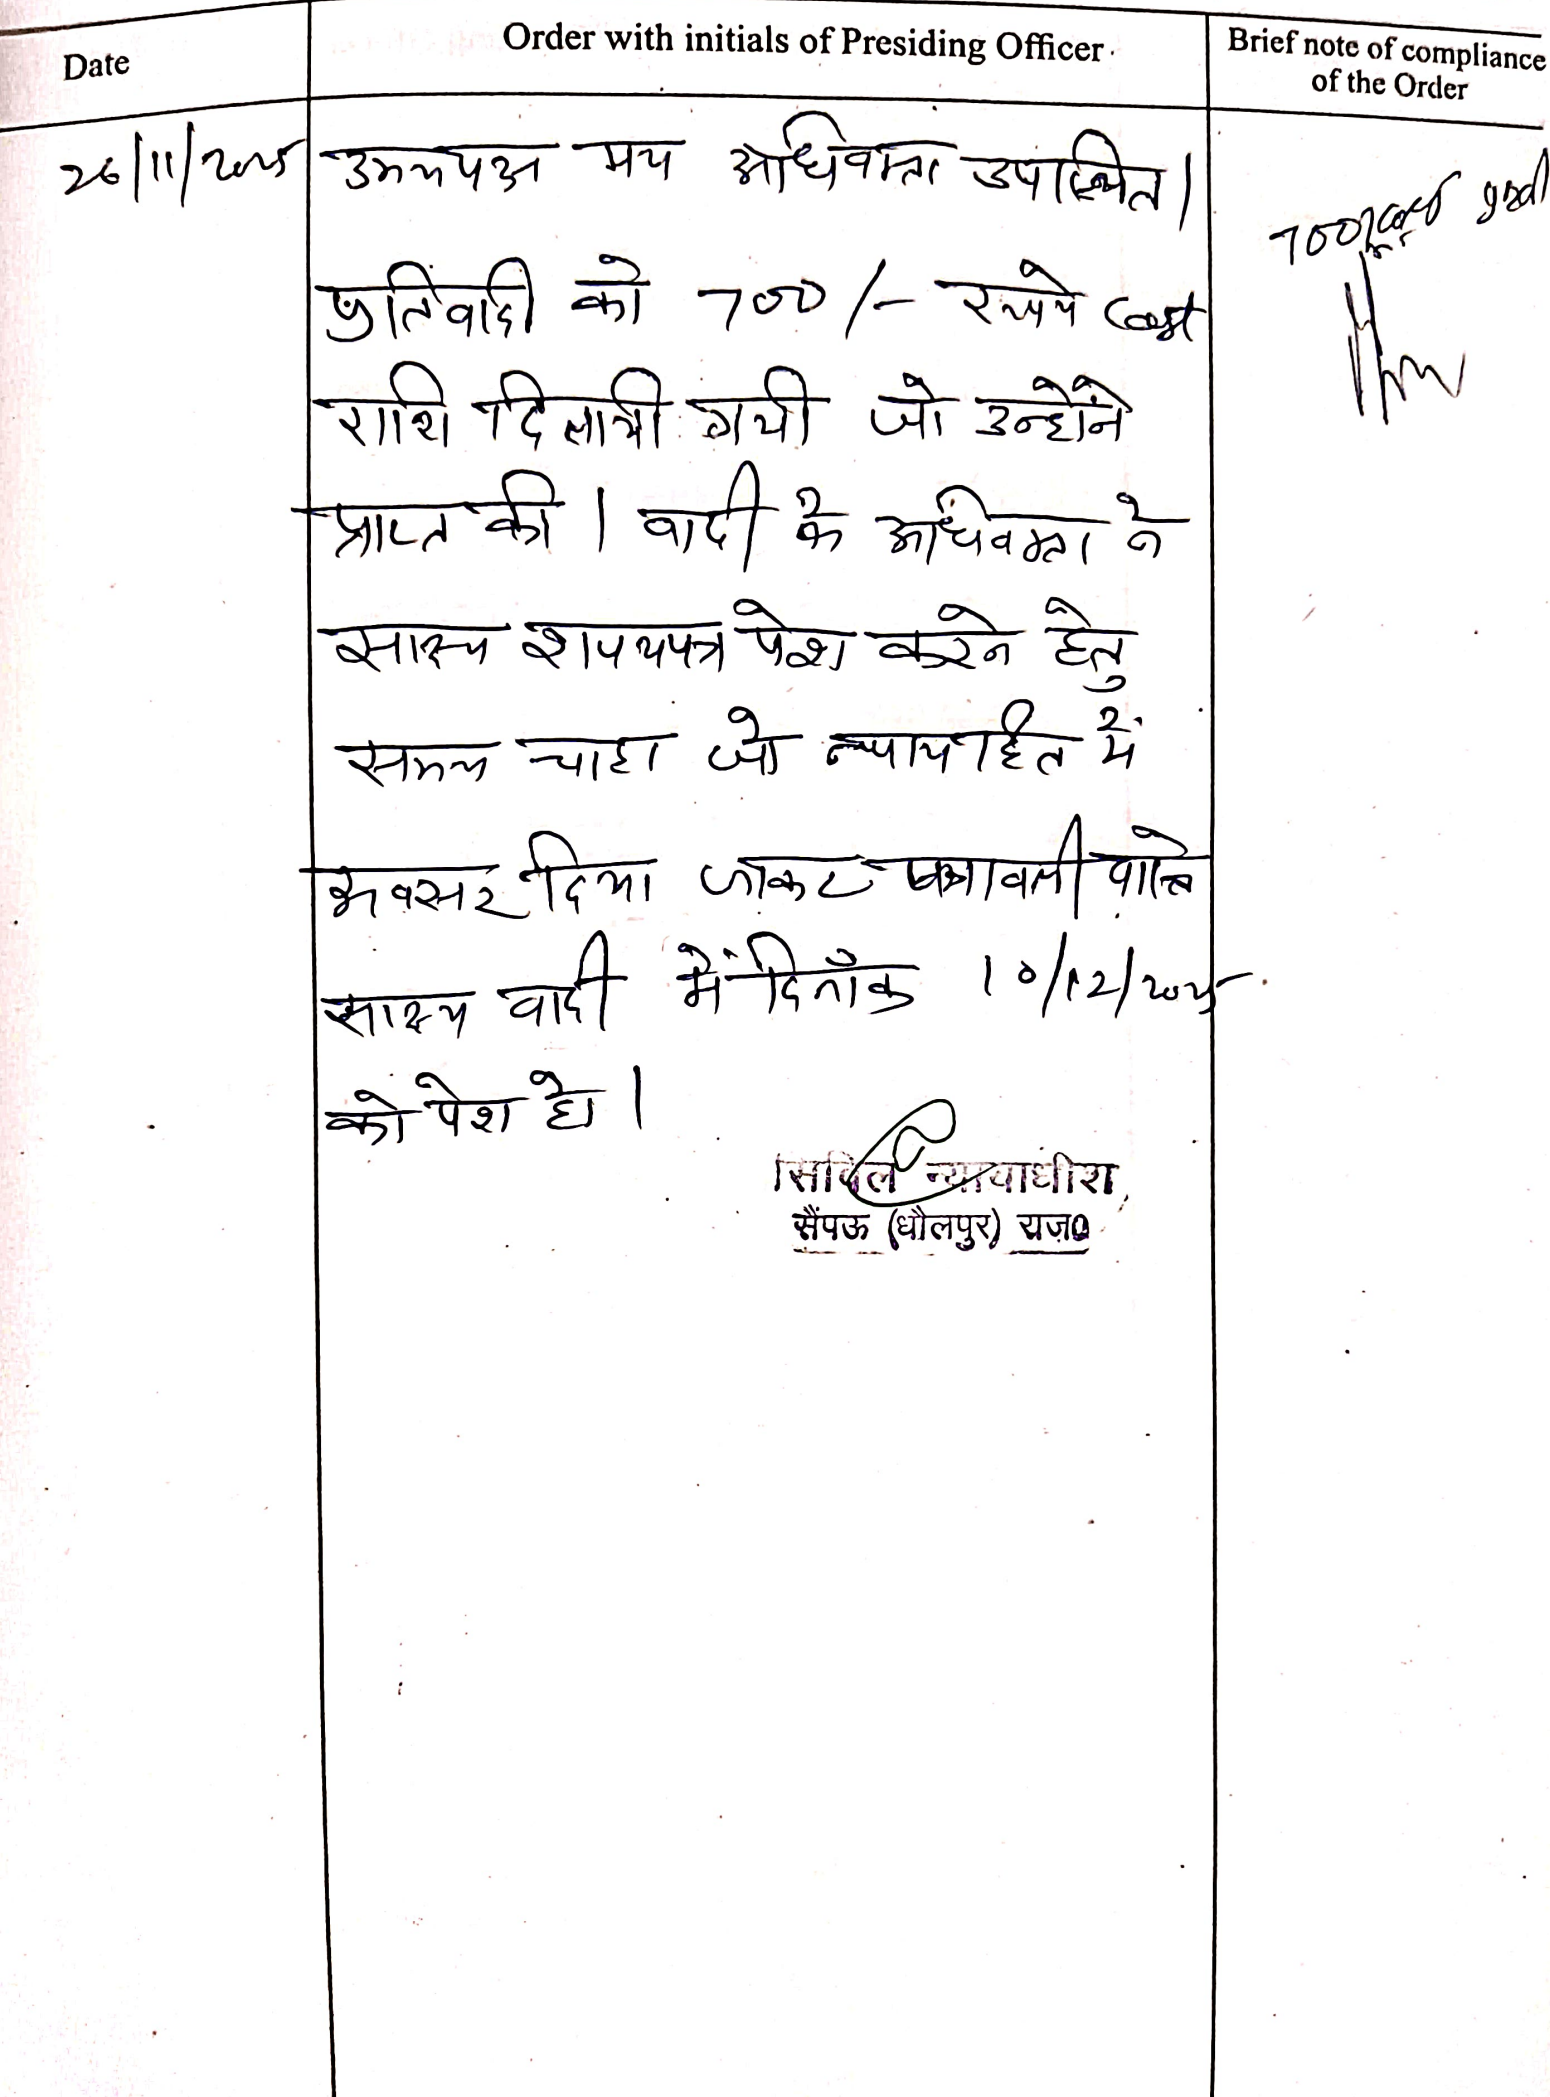 Date
Order with initials of Presiding Officer
Brief note of compliance
of the Order
26/11/2025
उभयपक्ष मय अधिवक्ता उपस्थित।
प्रतिवादी को 700/- रूपये Cost
राशि दिलायी गयी जो उन्होंने
प्राप्त की। वादी के अधिवक्ता ने
साक्ष्य शपथपत्र पेश करने हेतु
समय चाहा जो न्यायहित में
अवसर दिया जाकर पत्रावली वास्ते
साक्ष्य वादी में दिनाँक 10/12/2025
को पेश हो।
700
सिविल न्यायाधीश,
सैंपऊ (धौलपुर) राज०